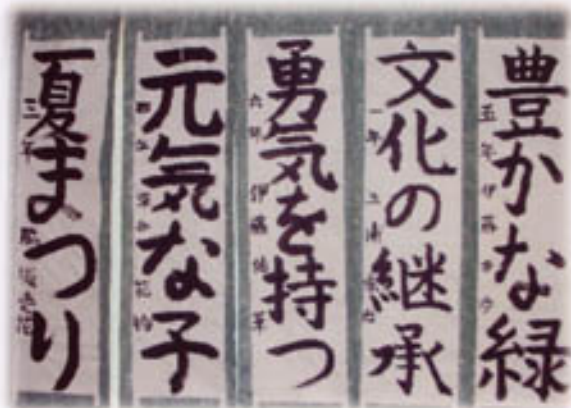 豊かな緑
五年
文化の継承
一年
勇気を持つ
六年 伊藤
元気な子
夏まつり
三年